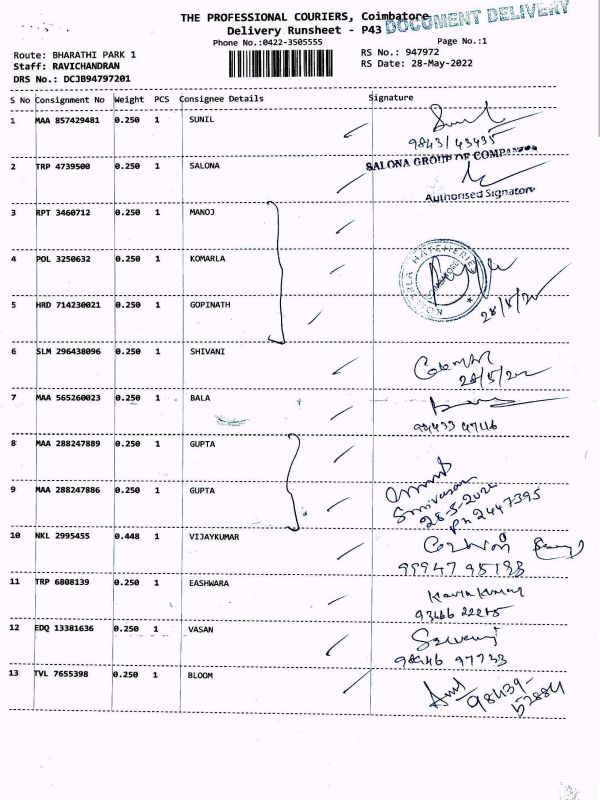 THE PROFESSIONAL COURIERS, Coimbatore
DOCUMENT DELIVERY
Delivery Runsheet - P43
Phone No.:0422-3505555
Page No.:1
Route: BHARATHI PARK 1
RS No.: 947972
Staff: RAVICHANDRAN
RS Date: 28-May-2022
DRS No.: DCJB94797201
S No Consignment No Weight PCS Consignee Details Signature
1 MAA 857429481 0.250 1 SUNIL
Sunil
9843/43435
2 TRP 4739500 0.250 1 SALONA
SALONA GROUP OF COMPANIES
Authorised Signatory
3 RPT 3460712 0.250 1 MANOJ
4 POL 3250632 0.250 1 KOMARLA
KOMARLA HATCHERIES
COIMBATORE
5 HRD 714230021 0.250 1 GOPINATH
28/5/22
6 SLM 296438096 0.250 1 SHIVANI
28/5/22
7 MAA 565260023 0.250 1 BALA
98433 47116
8 MAA 288247889 0.250 1 GUPTA
9 MAA 288247886 0.250 1 GUPTA
Srinivasan
28-5-2022
Ph 2447395
10 NKL 2995455 0.448 1 VIJAYKUMAR
99947 95133
11 TRP 6808139 0.250 1 EASHWARA
Kavin Kumar
93466 22215
12 EDQ 13381636 0.250 1 VASAN
98946 97733
13 TVL 7655398 0.250 1 BLOOM
98439-
52884